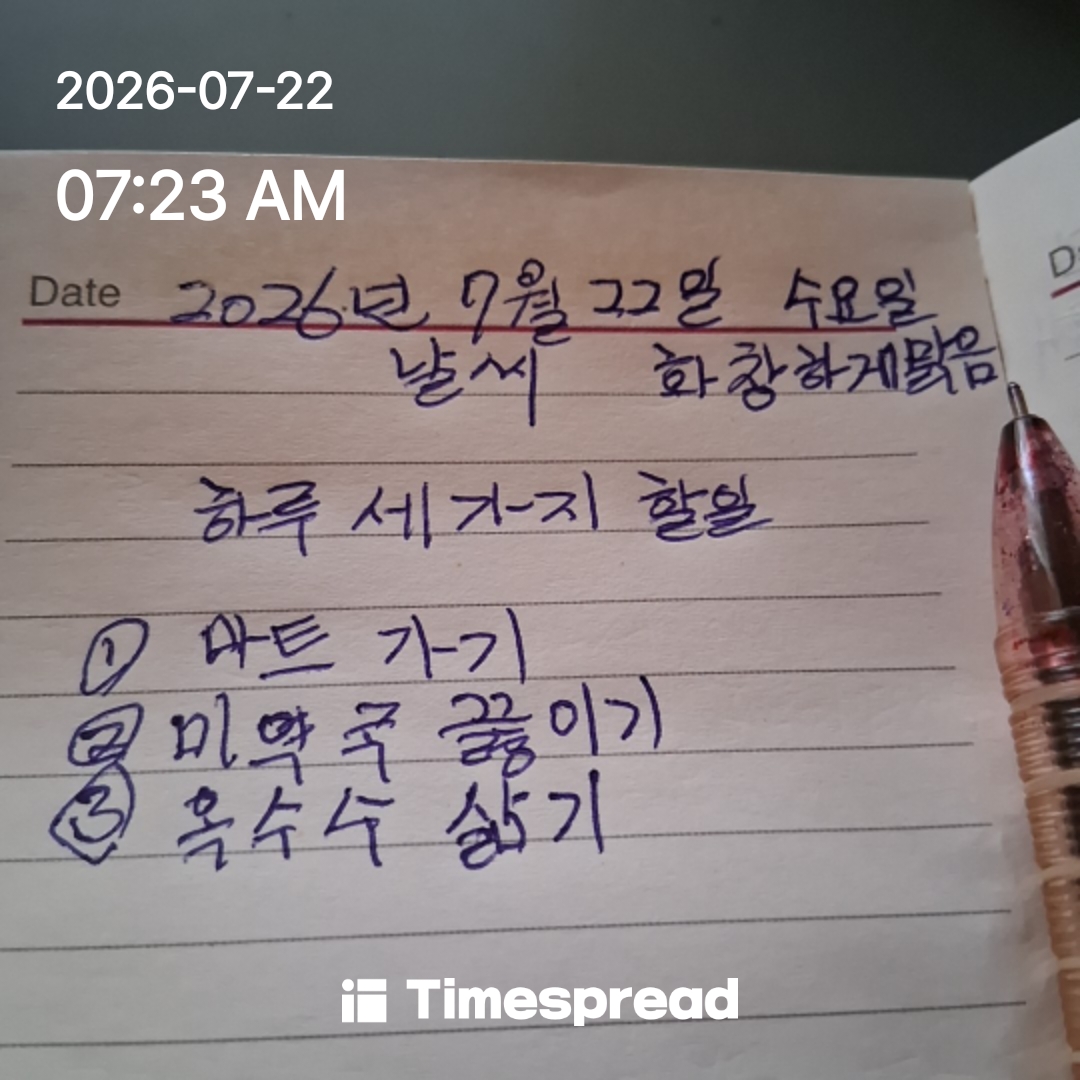 2026-07-22
07:23 AM
Date 2026년 7월 22일 수요일
날씨 화창하게맑음
하루 세가지 할일
① 마트 가기
② 미역국 끓이기
③ 옥수수 삶기
Timespread